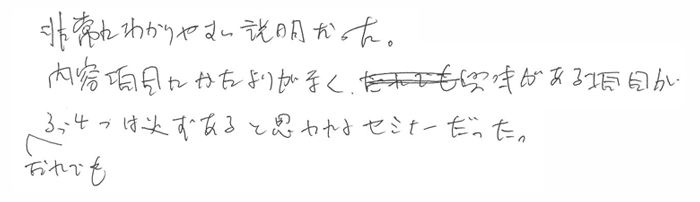 非常にわかりやすい説明だった。
内容項目にかたよりがなく、だれでも興味がある項目が
3つ4つは必ずあると思われるセミナーだった。
だれでも